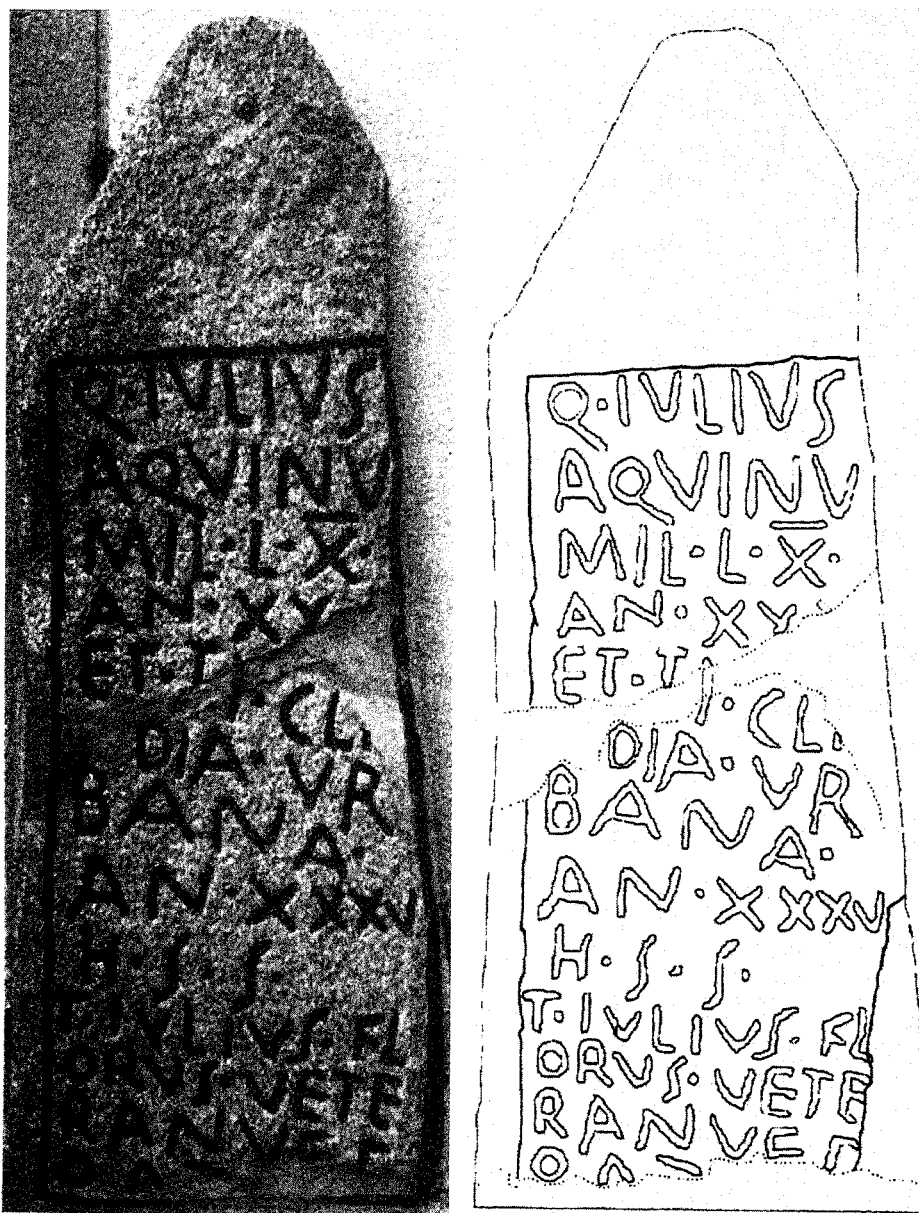 Q·IVLIVS
AQVINV
MIL·L·X̅·
AN·XV
ET·TI·CL·
DIA·VR
BANA·
AN·XXXV
H·S·S·
T·IVLIVS·FL
ORVS·VETE
RANV
Q·IVLIVS
AQVINV
MIL·L·X̅·
AN·XV
ET·TI·CL·
DIA·VR
BANA·
AN·XXXV
H·S·S·
T·IVLIVS·FL
ORVS·VETE
RANV